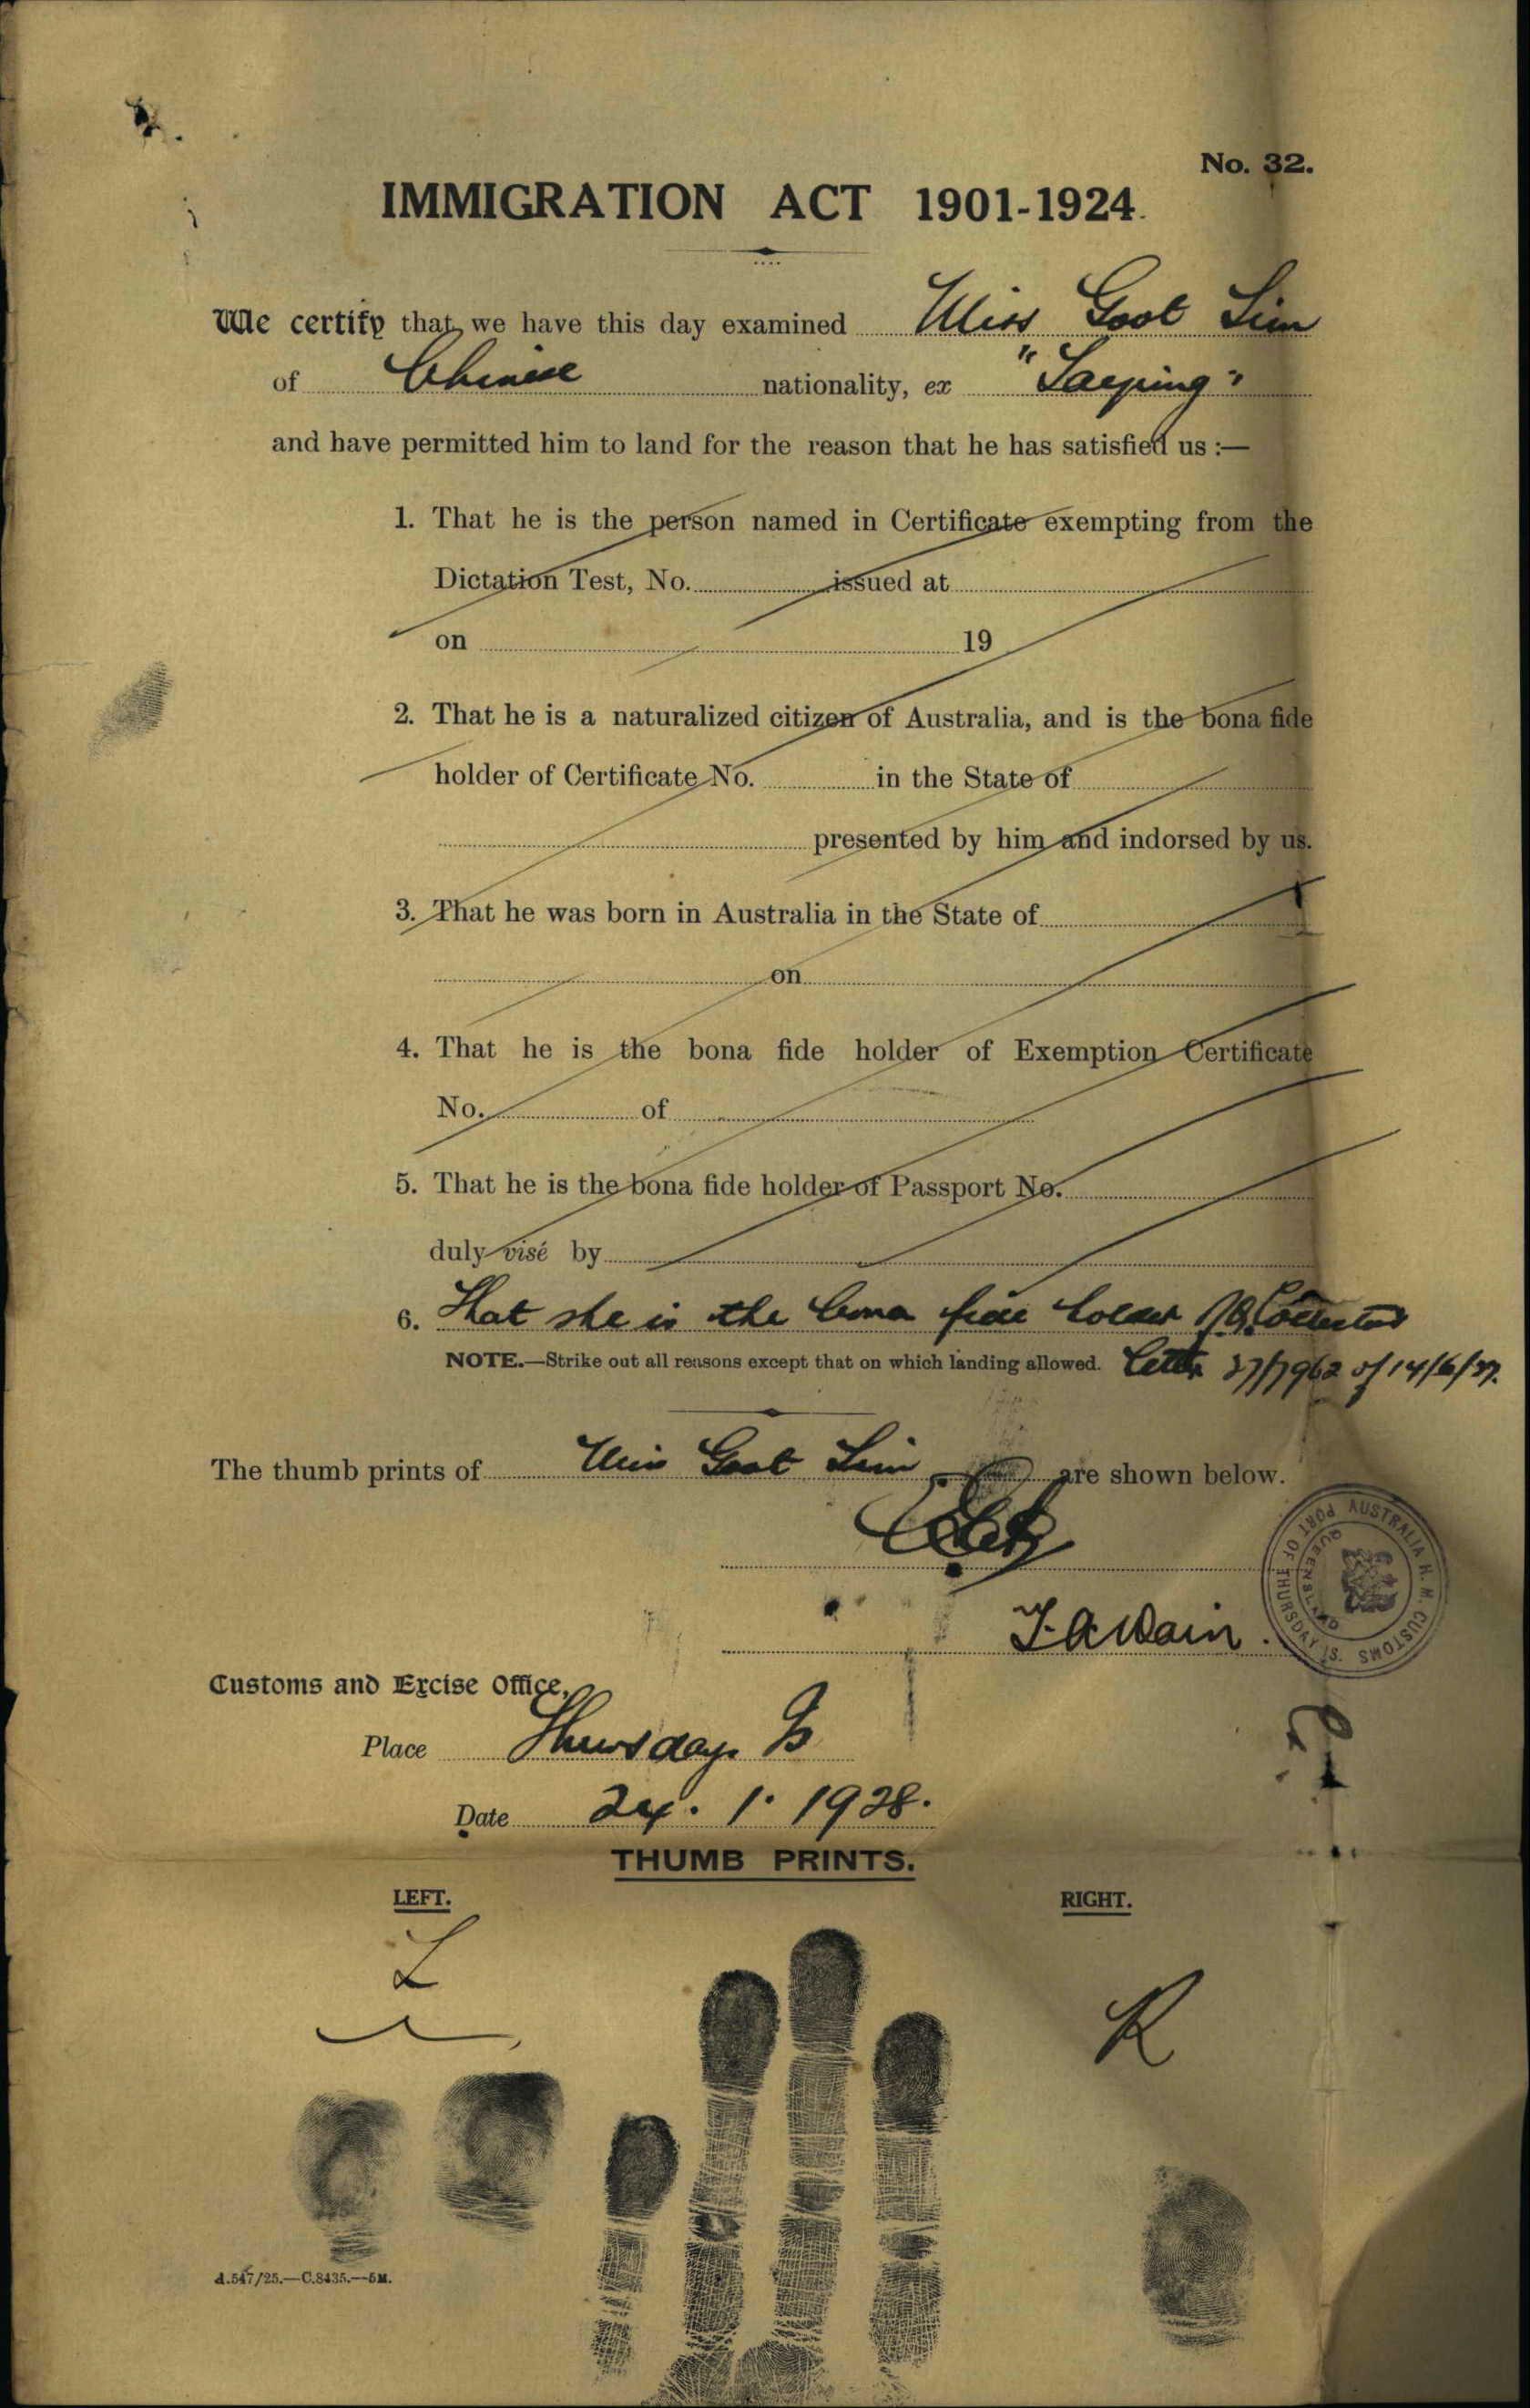 No. 32.
IMMIGRATION ACT 1901-1924.
We certify that, we have this day examined Miss Goot Sim
of Chinese nationality, ex "Taiping"
and have permitted him to land for the reason that he has satisfied us :—
1. That he is the person named in Certificate exempting from the
Dictation Test, No. issued at
on 19
2. That he is a naturalized citizen of Australia, and is the bona fide
holder of Certificate No. in the State of
presented by him and indorsed by us.
3. That he was born in Australia in the State of
on
4. That he is the bona fide holder of Exemption Certificate
No. of
5. That he is the bona fide holder of Passport No.
duly visé by
6. That she is the bona fide holder of Collectors
NOTE.—Strike out all reasons except that on which landing allowed. Letter 27/7962 of 14/6/27.
The thumb prints of Miss Goot Sim are shown below.
AUSTRALIA H. M. CUSTOMS
PORT OF THURSDAY IS.
QUEENSLAND
Customs and Excise Office,
Place Thursday Is
Date 24. 1. 1928.
THUMB PRINTS.
LEFT. RIGHT.
L
R
A.547/25.—C.8435.—5M.